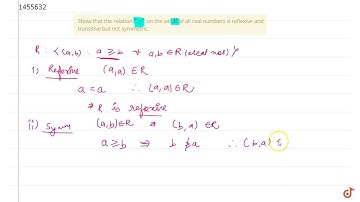 1455632
Show that the relation on the set of all real numbers is reflexive and
transitive but not symmetric.
R : {(a,b) : a ≥ b ∀ a,b ∈ R (real no)}
i) Reflexive (a,a) ∈ R
a = a ∴ (a,a) ∈ R
⇒ R is reflexive
ii) Symm (a,b) ∈ R ⇒ (b,a) ∈ R
a ≥ b ⇒ b ≱ a ∴ (b,a)
doubtnut